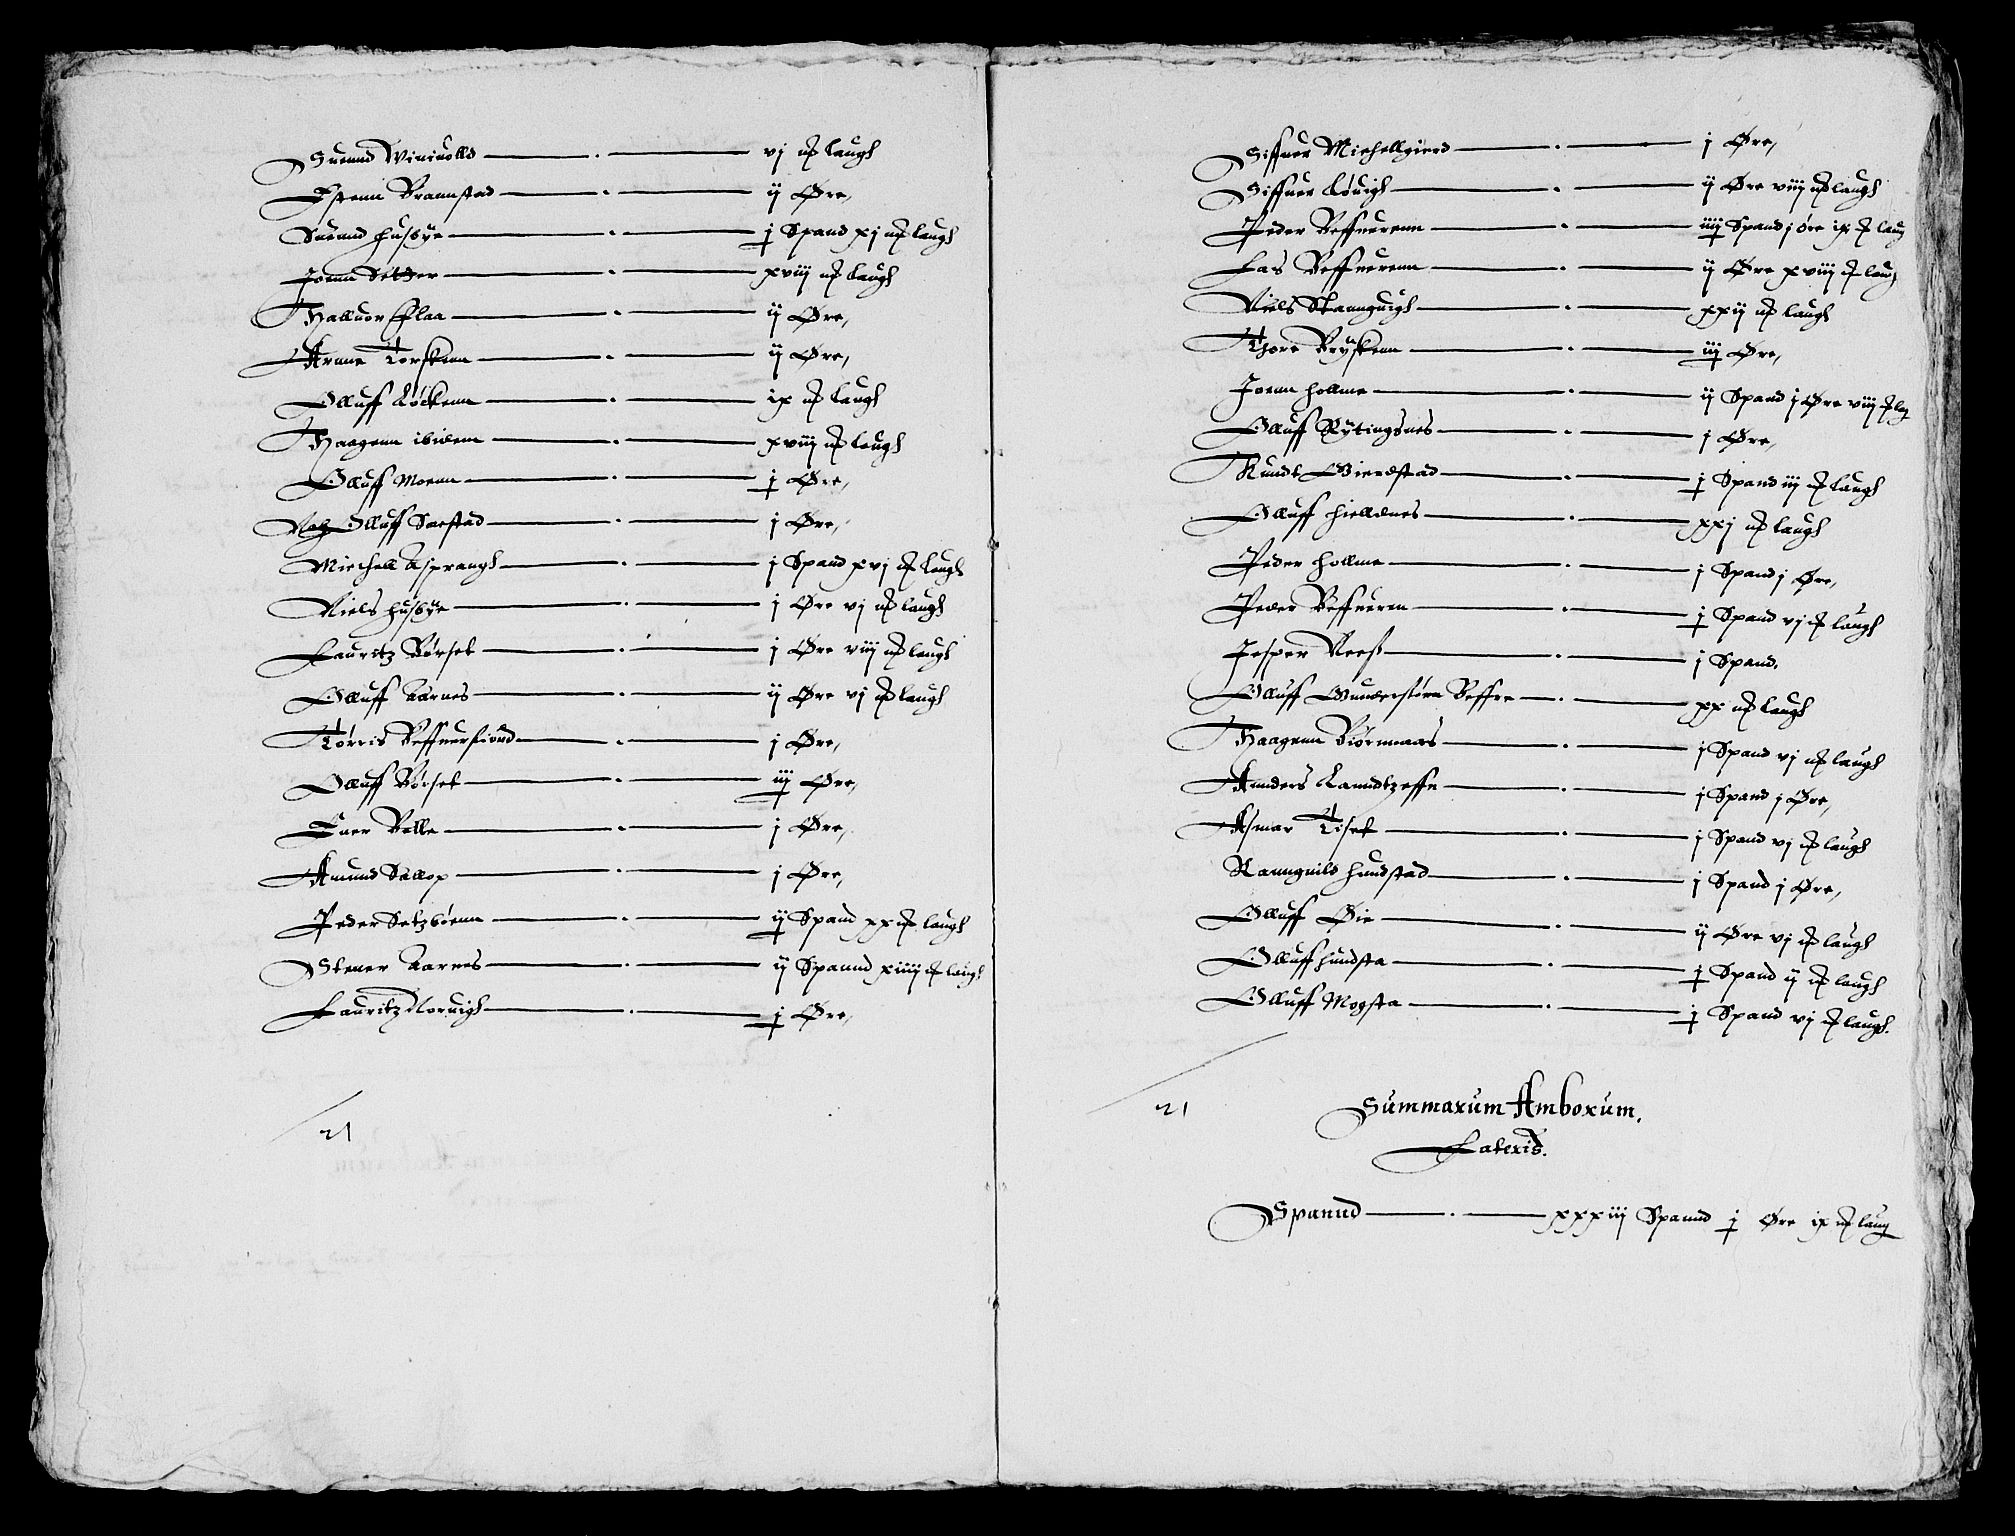 Suend Viniuolld — vj ℔ laugh
Estenn Brannstad — ij Øre,
Suend Husbye — j Spand xj ℔ laugh
Joenn Setter — xviij ℔ laugh
Halluor Flaa — ij Øre,
Arnne Torskenn — ij Øre,
Olluff Løckenn — ix ℔ laugh
Haagenn ibidem — xviij ℔ laugh
Olluff Moenn — j Øre,
Olluff Saestad — j Øre,
Michell Asprangh — j Spand xvj ℔ laugh
Niels Husbye — j Øre vj ℔ laugh
Lauritz Børset — j Øre viij ℔ laugh
Olluff Aarnes — ij Øre vj ℔ laugh
Tørris Beffuerfiord — j Øre,
Olluff Børset — iij Øre,
Euer Balle — j Øre,
Amund Sallop — j Øre,
Peder Setzbøenn — ij Spand xx ℔ laugh
Stener Aarnes — ij Spannd xiiij ℔ laugh
Lauritz Noruigh — j Øre,
21
Siffuer Michellgierd — j Øre,
Siffuer Løuigh — ij Øre viij ℔ laugh
Peder Beffuerenn — iiij Spand j øre ix ℔ laug
Las Beffuerenn — ij Øre xviij ℔ laug
Niels Staanguigh — xxij ℔ laugh
Thore Bryskenn — iij Øre,
Joenn Hollme — ij Spand j Øre viij ℔ lag
Olluff Rytingsnes — j Øre,
Knudt Gierdstad — j Spand iij ℔ laugh
Olluff Hielldnes — xxj ℔ laugh
Peder Hollme — j Spand j Øre,
Peder Beffueren — j Spand vj ℔ laugh
Jesper Neess — j Spand,
Olluff Gunderstøen Beffre — xx ℔ laugh
Haagenn Biørnnaas — j Spand vj ℔ laugh
Anders Lanndtzeffn — j Spand j Øre,
Asmar Tiset — j Spand vj ℔ laugh
Ranngnild Hundstad — j Spand j Øre,
Olluff Øie — ij Øre vj ℔ laugh
Olluff Hundsta — j Spand ij ℔ laugh
Olluff Mogsta — j Spand vj ℔ laugh.
21
Summarum Amborum.
Lateris.
Spannd — xxxiij Spannd j Øre ix ℔ laug